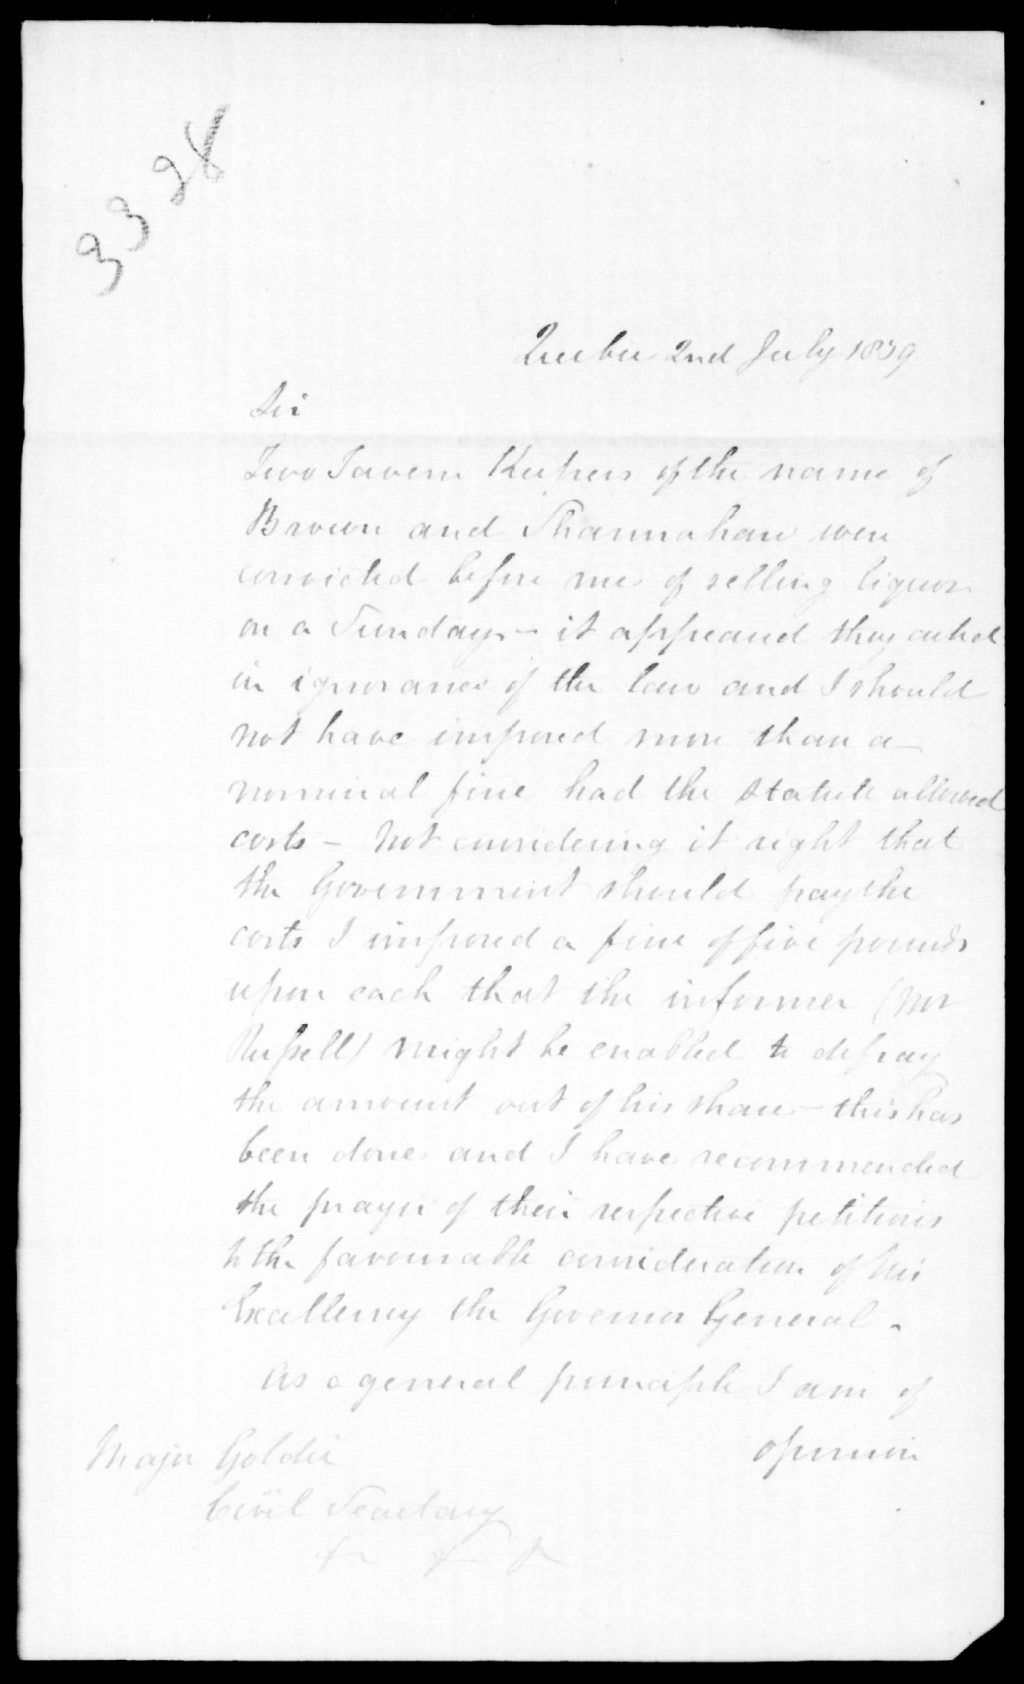 3328
Quebec 2nd July 1839
Sir
Two Tavern Keepers of the name of
Brown and Shannahan were
convicted before me of selling liquor
on a Sunday – it appeared they acted
in ignorance of the law and I should
not have imposed more than a
nominal fine had the statute allowed
costs – Not considering it right that
the Government should pay the
costs I imposed a fine of five pounds
upon each that the informer (Mr
Russell) might be enabled to defray
the amount out of his share – this has
been done and I have recommended
the prayer of their respective petitions
to the favourable consideration of his
Excellency the Governor General.
As a general principle I am of
opinion
Major Goldie
Civil Secretary